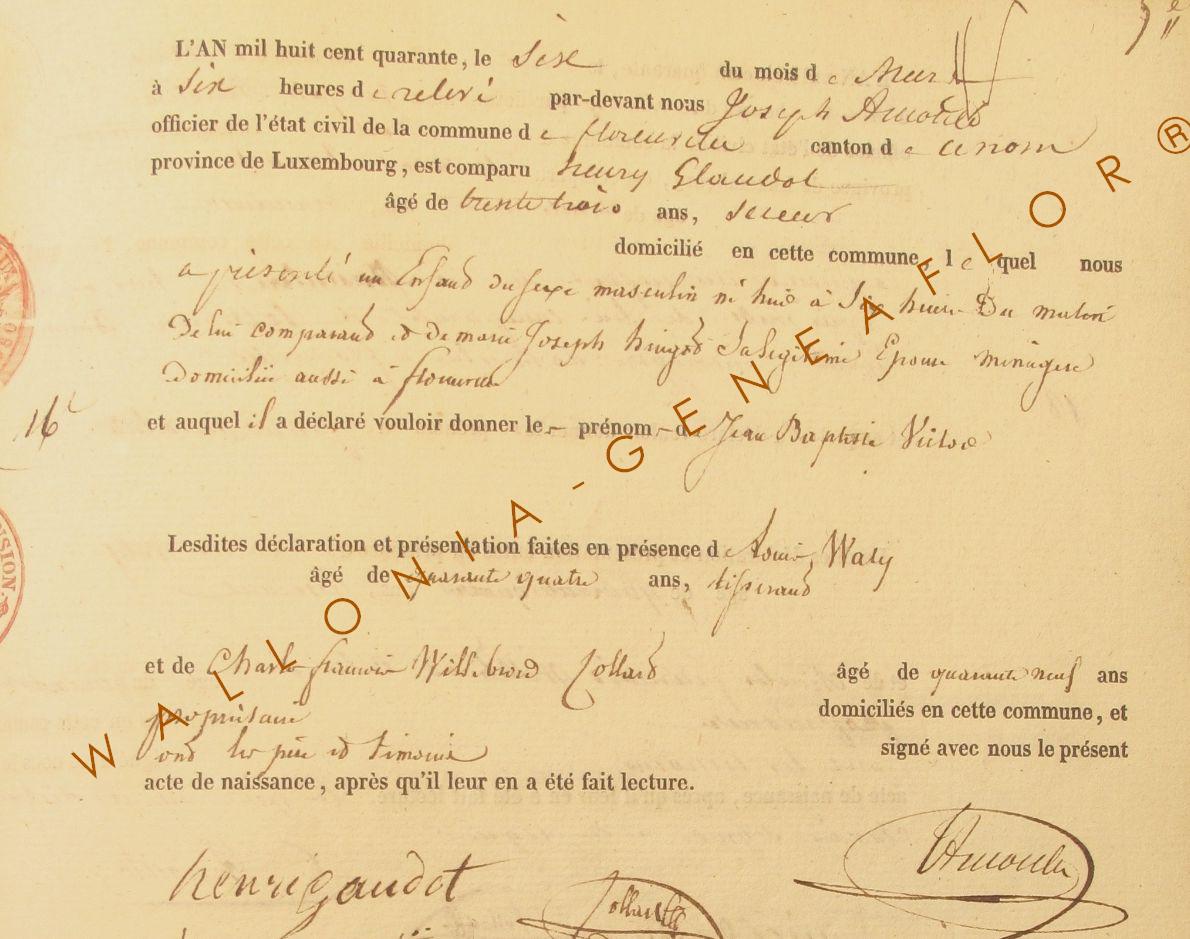 L'AN mil huit cent quarante, le six du mois de Mars
à six heures de relevé par-devant nous Joseph Arnould
officier de l'état civil de la commune de florenville canton d
province de Luxembourg, est comparu henry Glaudot
âgé de trente trois ans, scieur
domicilié en cette commune, lequel nous
a présenté un Enfand du sexe masculin né hui à Six heures Du matin
De lui comparand et de marie Joseph Sa légitime Epouse ménagere
domiciliée aussi à florenville
16e
et auquel il a déclaré vouloir donner le prénom de Jean Baptiste Victor
Lesdites déclaration et présentation faites en présence de Louis Waty
âgé de quarante quatre ans, tisserand
et de Charle francois Willebrord Collard âgé de quarante neuf ans
propriétaire domiciliés en cette commune, et
ond les père et témoins signé avec nous le présent
acte de naissance, après qu'il leur en a été fait lecture.
henri gaudot Collard Arnould
WALLONIA-GENEAFLOR®
SION.